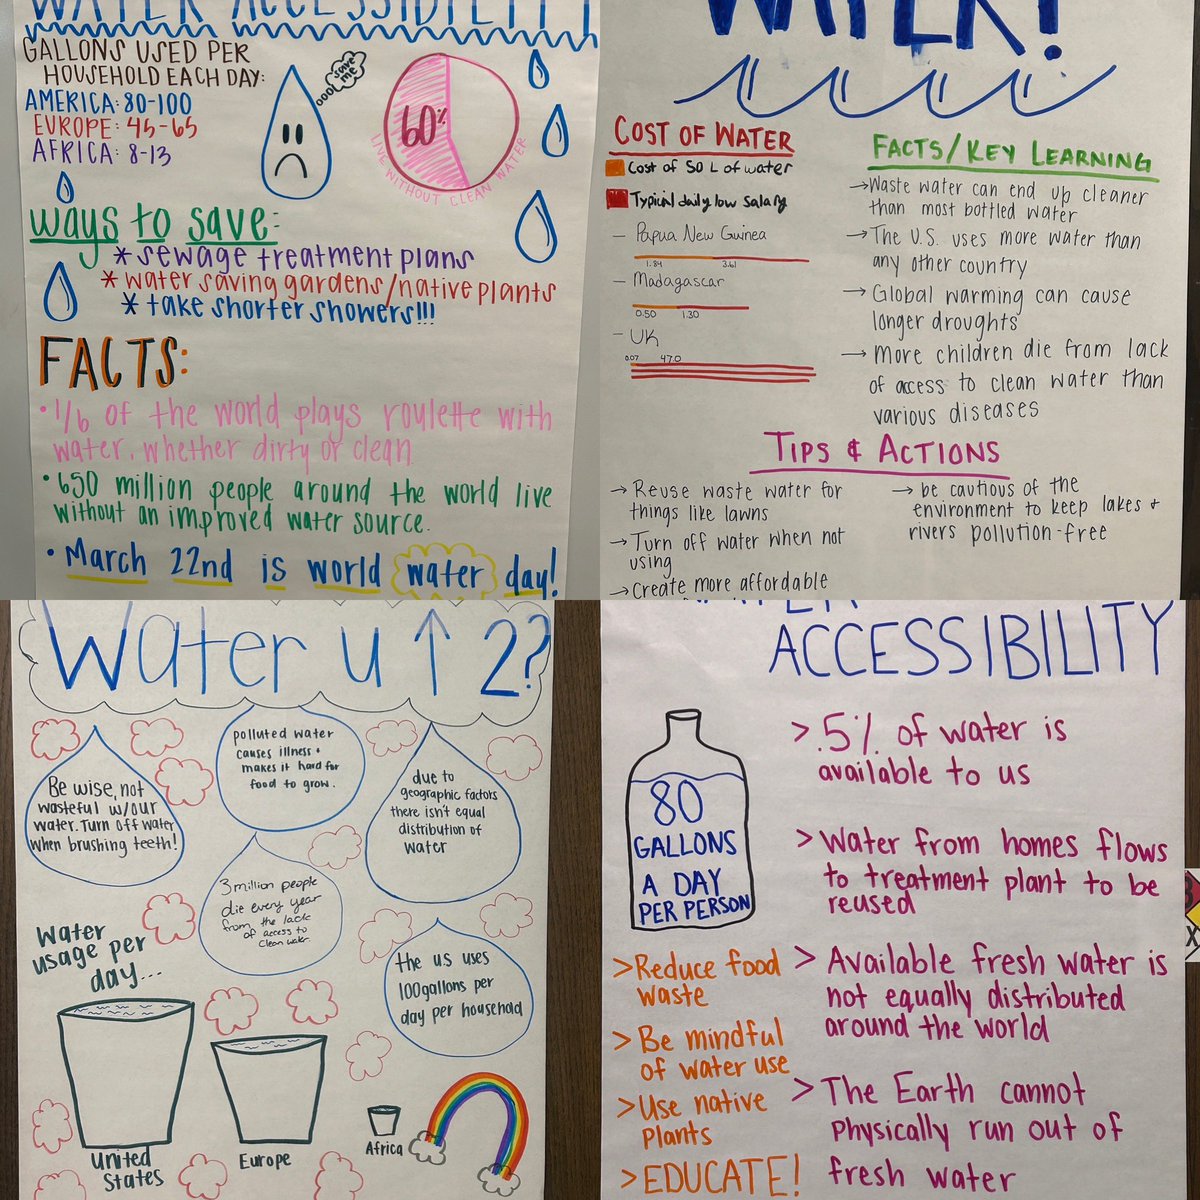 WATER ACCESSIBILITY
GALLONS USED PER
HOUSEHOLD EACH DAY:
AMERICA: 80-100
EUROPE: 45-65
AFRICA: 8-13
save
me
60%
LIVE WITHOUT CLEAN WATER
ways to save:
* sewage treatment plans
* water saving gardens/native plants
* take shorter showers!!!
FACTS:
• 1/6 of the world plays roulette with
water, whether dirty or clean
• 650 million people around the world live
without an improved water source.
• March 22nd is world water day!
WATER!
COST OF WATER
Cost of 50 L of water
Typical daily low salary
- Papua New Guinea
1.84 3.61
- Madagascar
0.50 1.30
- UK
0.07 47.0
FACTS/KEY LEARNING
→ Waste water can end up cleaner
than most bottled water
→ The U.S. uses more water than
any other country
→ Global warming can cause
longer droughts
→ More children die from lack
of access to clean water than
various diseases
TIPS & ACTIONS
→ Reuse waste water for
things like lawns
→ Turn off water when not
using
→ Create more affordable
→ be cautious of the
environment to keep lakes +
rivers pollution-free
Water u ↑ 2?
Be wise, not
wasteful w/our
water. Turn off water
when brushing teeth!
polluted water
causes illness +
makes it hard for
food to grow.
due to
geographic factors
there isn't equal
distribution of
water
3 million people
die every year
from the lack
of access to
clean water.
the u.s uses
100 gallons per
day per household
Water
usage per
day...
United
States
Europe
Africa
WATER
ACCESSIBILITY
80
GALLONS
A DAY
PER PERSON
> .5% of water is
available to us
> Water from homes flows
to treatment plant to be
reused
> Available fresh water is
not equally distributed
around the world
> The Earth cannot
physically run out of
fresh water
> Reduce food
waste
> Be mindful
of water use
> Use native
plants
> EDUCATE!